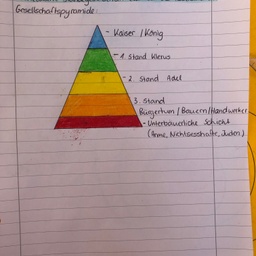 Gesellschaftspyramide:
- Kaiser / König
- 1. Stand Klerus
- 2. Stand Adel
3. Stand
Bürgertum / Bauern / Handwerker
- Unterbäuerliche Schicht
(Arme, Nichtsesshafte, Juden)